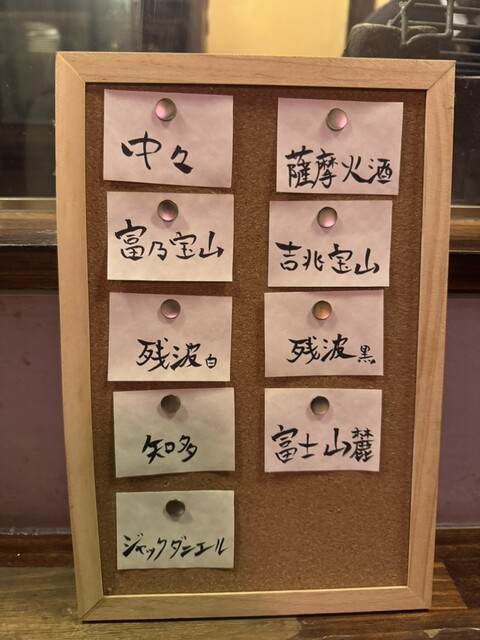 中々
薩摩火酒
富乃宝山
吉兆宝山
残波 白
残波 黒
知多
富士山麓
ジャックダニエル